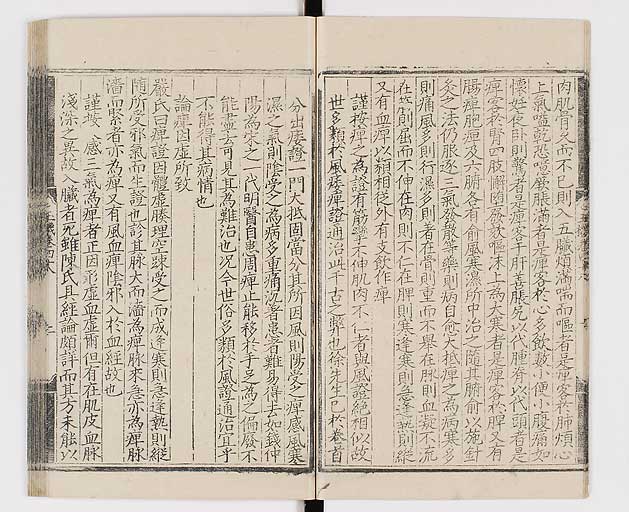 肉肌骨久而不已則入五臟煩滿喘而嘔者是痺客於肺煩心
上氣嗌乾恐噫厥脹滿者是痺客於心多飲數小便小腹痛如
懷妊夜卧則驚者是痺客于肝善脹尻以代踵脊以代頭者是
痺客於腎四肢懈惰發欬嘔沫上為大寒者是痺客於脾又有
腸痺胞痺及六腑各有俞風寒濕所中治之隨其腑俞以施針
灸之法仍服逐三氣發散等藥則病自愈大抵痺之為病寒多
則痛風多則行濕多則著在骨則重而不舉在脉則血凝不流
在筋則屈而不伸在肉則不仁在脾則寒逢寒則急逢熱則縱
又有血痺以類相從外有支飲作痺
謹按痺之為證有筋攣不伸肌肉不仁者與風證絕相似故
世多類於風痿痺證通治此千古之弊也徐先生巳於卷首
分出痿證一門大抵固當分其所因風則陽受之痺感風寒
濕之氣則陰受之為病多重痛沉著患者難易得去如錢仲
陽為宋之一代明醫自患周痺止能移於手足為之偏廢不
能盡去可見其為難治也况今世俗多類於風證通治宜乎
不能得其病情也
論痺因虛所致
嚴氏曰痺證因體虛腠理空踈受之而成逢寒則急逢熱則縱
隨所受邪氣而生證也診其脉大而濇為痺脉來急亦為痺脉
濇而緊者亦為痺又有風血痺陰邪入於血經故也
謹按 感三氣為痺者正因形虛血虛爾但有在肌皮血脉
淺深之異故入臟者死雖陳氏其經論頗詳而其方未能以